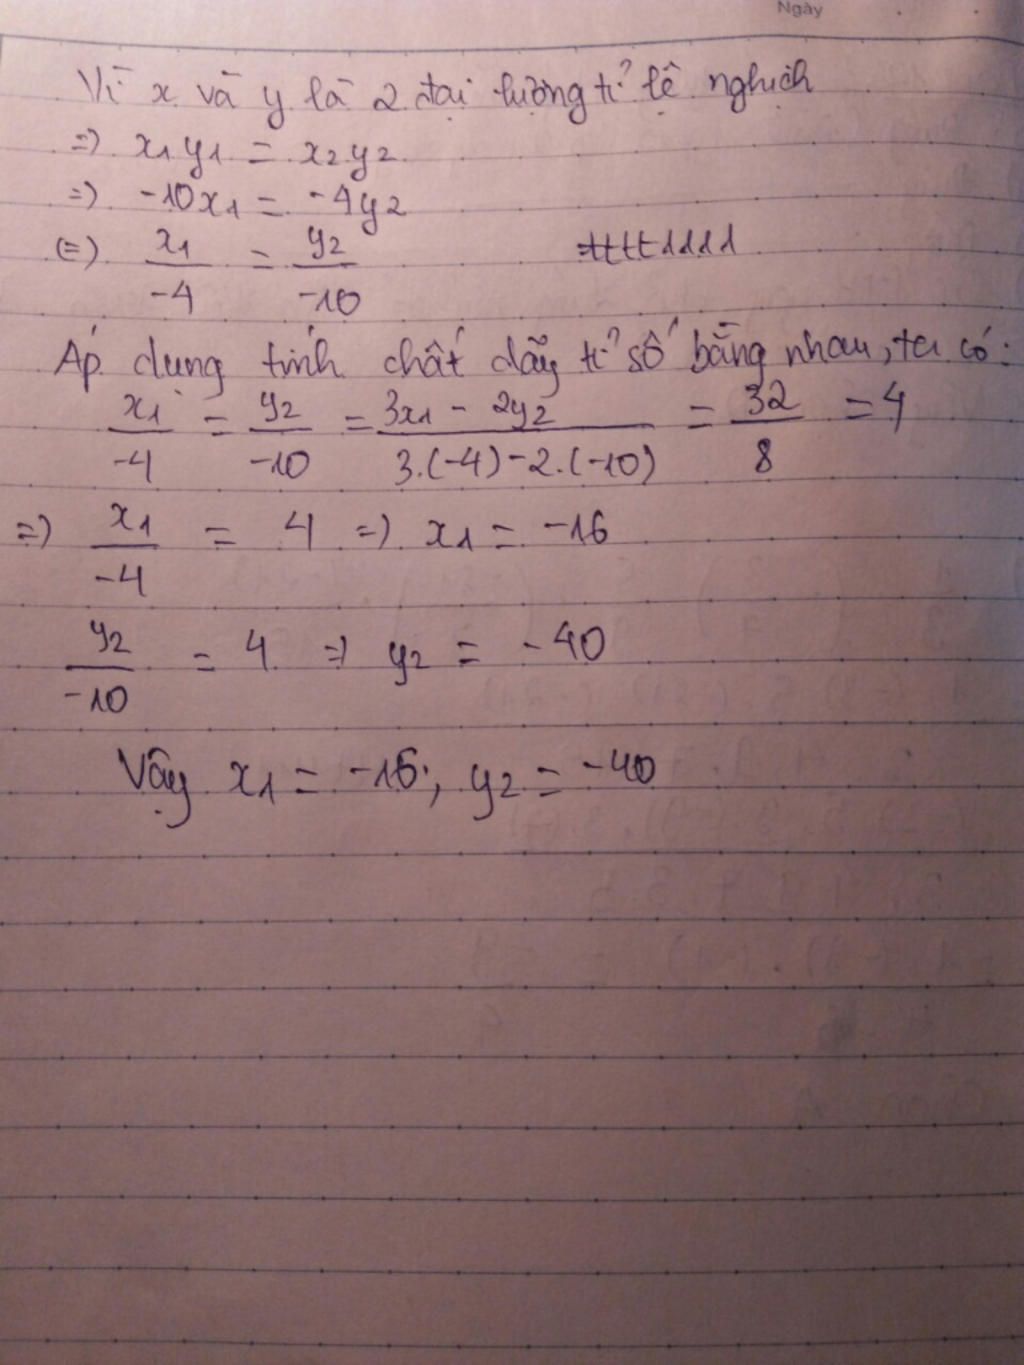 Ngày
Vì x và y là 2 đại lượng tỉ lệ nghịch
=) x1y1 = x2y2
=) -10x1 = -4y2
(=) x1/-4 = y2/-10
Áp dụng tính chất dãy tỉ số bằng nhau, ta có:
x1/-4 = y2/-10 = 3x1 - 2y2/3.(-4)-2.(-10) = 32/8 = 4
=) x1/-4 = 4 =) x1 = -16
y2/-10 = 4 =) y2 = -40
Vậy x1 = -16; y2 = -40